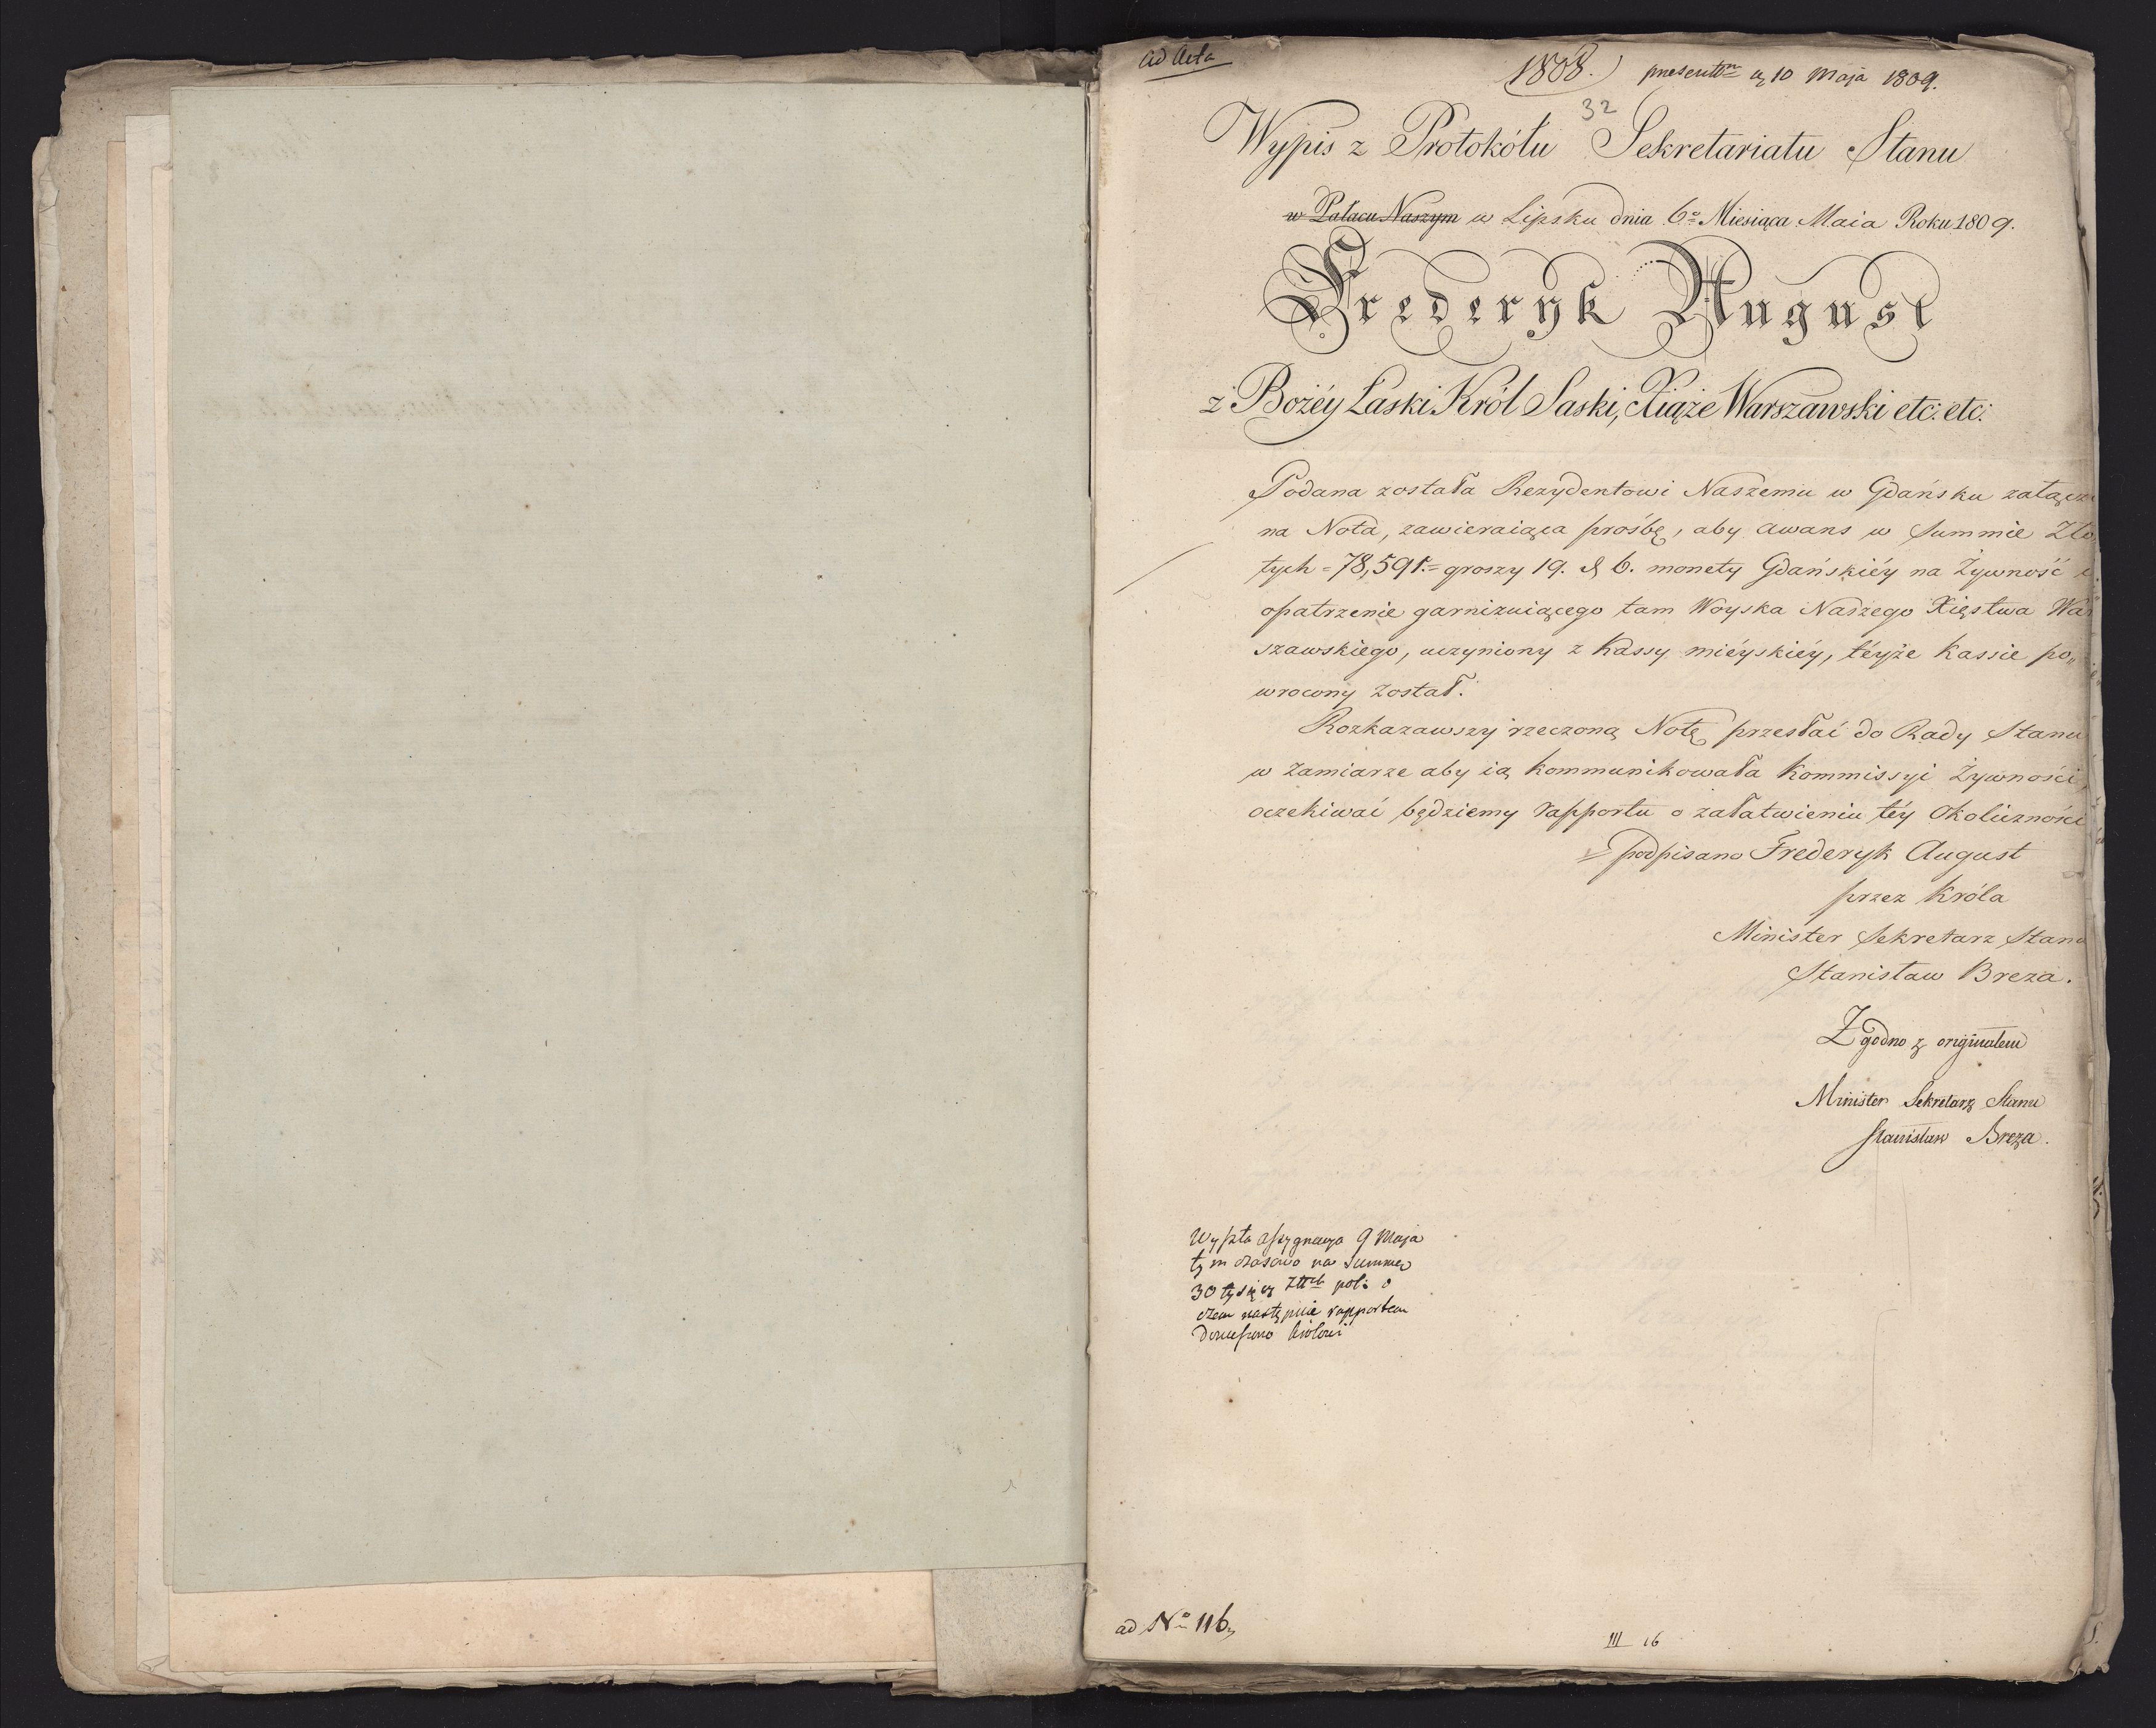 ad Acta
1808. presentm d 10 Maja 1809.
32
Wypis z Protokółu Sekretariatu Stanu
w Pałacu Naszym w Lipsku dnia 6o Miesiąca Maia Roku 1809.
Frederyk August
z Bożéy Łaski Król Saski, Xiąże Warszawski etc: etc:
Podana została Rezydentowi Naszemu w Gdańsku załącz
na Nota, zawieraiąca prośbę, aby awans w summie Zło
tych = 78,591. = groszy 19. & 6. monety Gdańskiéy na Żywność i
opatrzenie garnizuiącego tam Woyska Naszego Xięstwa War
szawskiego, uczyniony z Kassy miéyskiéy, téyże Kassie po„
wrocony został.
Rozkazawszy rzeczoną Notę przesłać do Rady Stanu
w zamiarze aby ią kommunikowała Kommissyi Żywności,
oczekiwać będziemy rapportu o załatwieniu téy okoliczności
= podpisano Frederyk August
przez Króla
Minister Sekretarz Stanu
Stanisław Breza.
Zgodno z originałem
Minister Sekretarz Stanu
Stanisław Breza.
Wyszła assygnacya 9 Maja
tymczasowo na summę
30 tysięcy Złtch pol: o
czem następnie rapportem
doniesiono Królowi
ad No 116.
III 16